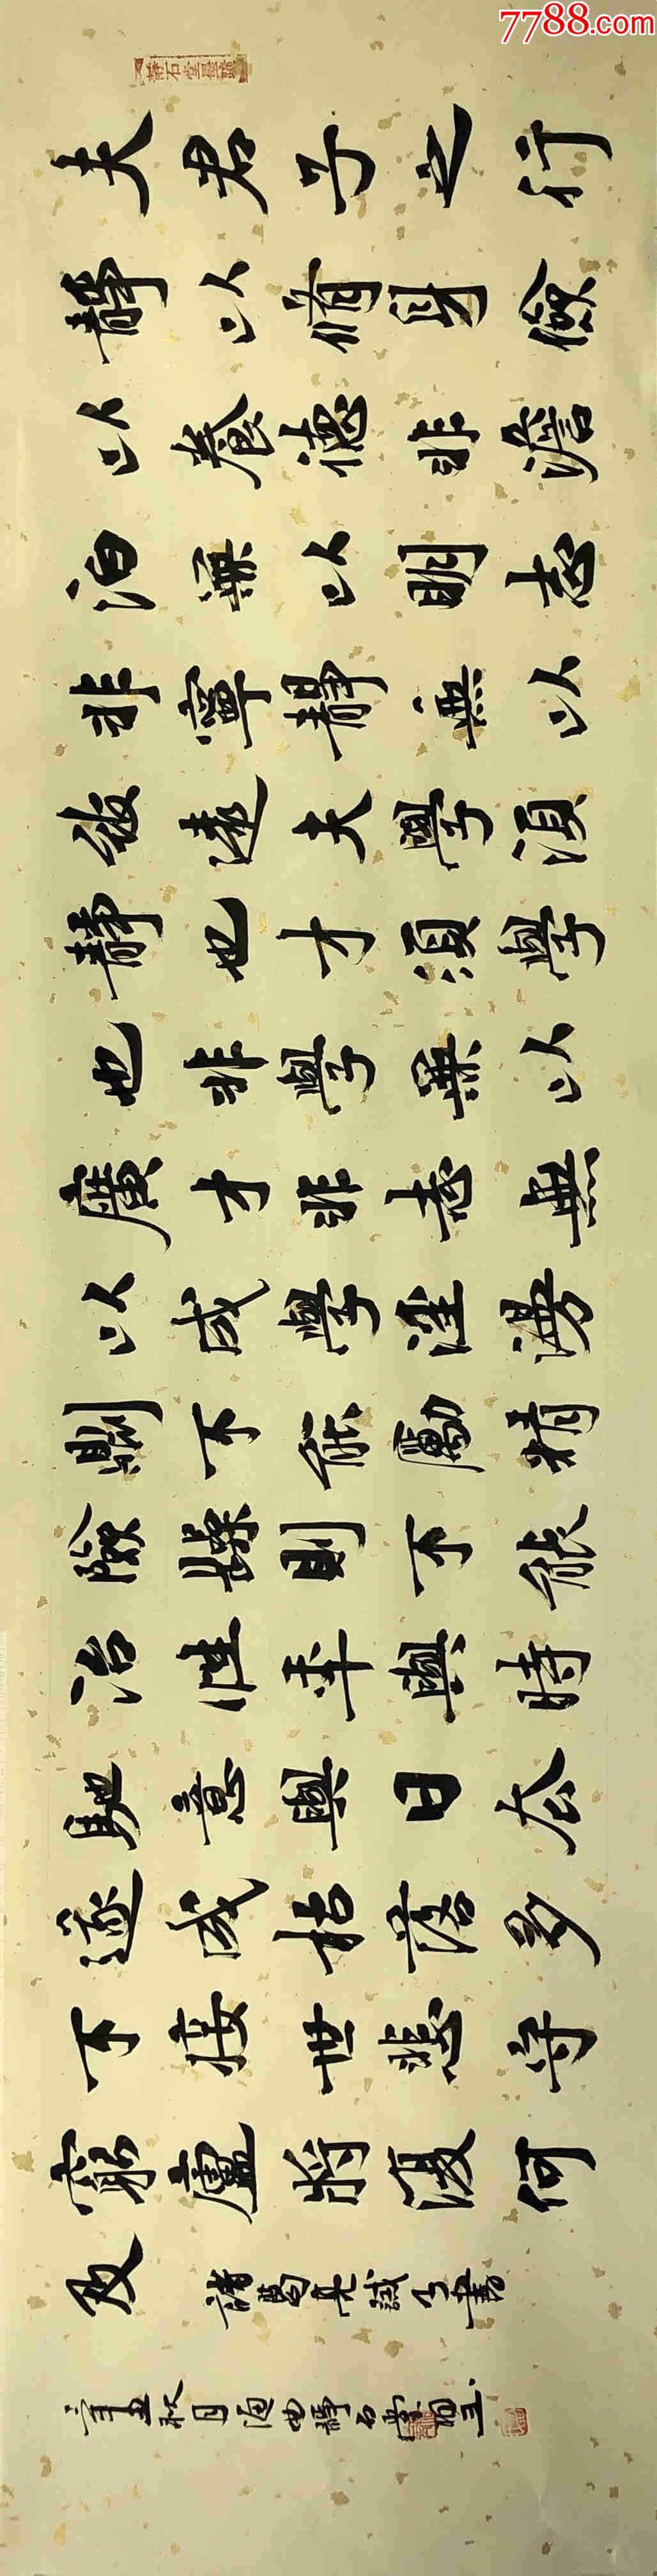 7788.com
夫君子之行
靜以脩身儉
以養德非澹
泊無以明志
非寧靜無以
致遠夫學須
靜也才須學
也非學無以
廣才非志無
以成學滛漫
則不能勵精
險躁則不能
治性年與時
馳意與日去
遂成枯落多
不接世悲守
窮廬將復何
及
諸葛亮誡子書
辛丑秋日海曲靜石堂